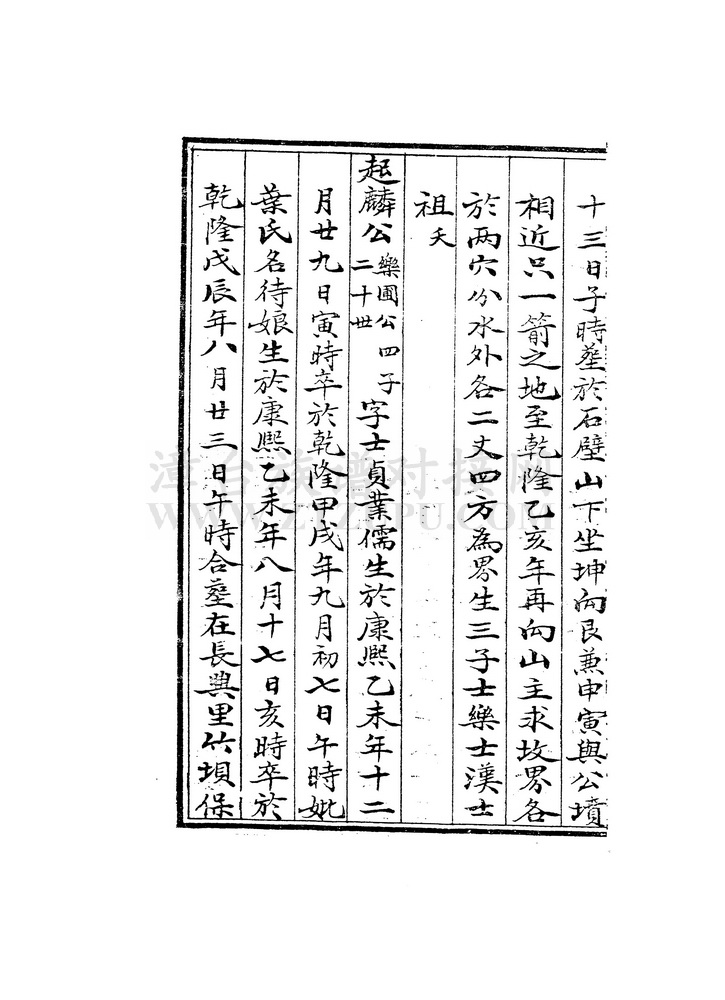 十三日子時塟於石壁山下坐坤向艮兼申寅與公墳
相近只一箭之地至乾隆乙亥年再向山主求坟界各
於两穴分水外各二丈四方為界生三子士樂士漢士
祖夭
起麟公樂圃公四子二十世字士貞業儒生於康熙乙未年十二
月廿九日寅時卒於乾隆甲戌年九月初七日午時妣
葉氏名待娘生於康熙乙未年八月十七日亥時卒於
乾隆戊辰年八月廿三日午時合塟在長興里竹垻保
漳台族谱对接网
WWW.ZTZUPU.COM